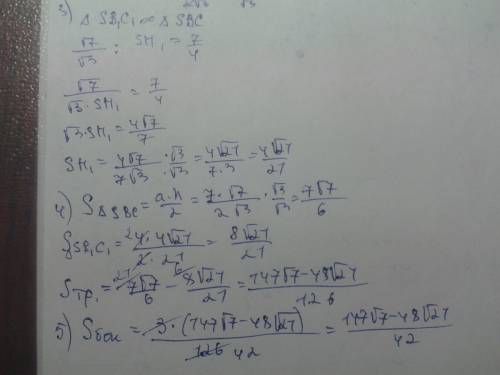 2√3 √3
3) Δ SB₁C₁ ∞ Δ SBC
√7/√3 : SH₁ = 7/4
√7/(√3·SH₁) = 7/4
√3·SH₁ = 4√7/7
SH₁ = 4√7/(7√3) · √3/√3 = 4√21/(7·3) = 4√21/21
4) S Δ SBC = a·h/2 = 7·√7/(2√3) · √3/√3 = 7√7/6
S SB₁C₁ = 4·4√21/(2·21) = 8√21/21
Sтр. = 7√7/6 - 8√21/21 = (147√7-48√21)/126
5) Sбок = 3·(147√7-48√21)/126 42 = (147√7-48√21)/42